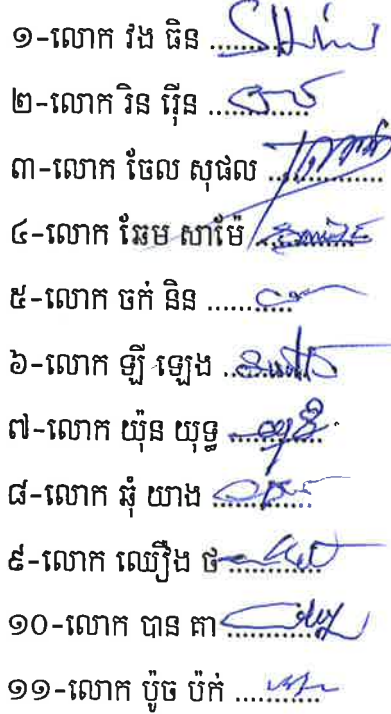 ១-លោក វង ធិន ............
២-លោក រិន រ៉ើន ............
៣-លោក ចែល សុផល ............
៤-លោក ឆែម សាម៉ែ ............
៥-លោក ចក់ និន ............
៦-លោក ឡី ឡេង ............
៧-លោក យ៉ុន យុទ្ធ ............
៨-លោក ឆុំ យាង ............
៩-លោក ឈឿង ថ ............
១០-លោក បាន គា ............
១១-លោក ប៉ូច ប៉ក់ ............